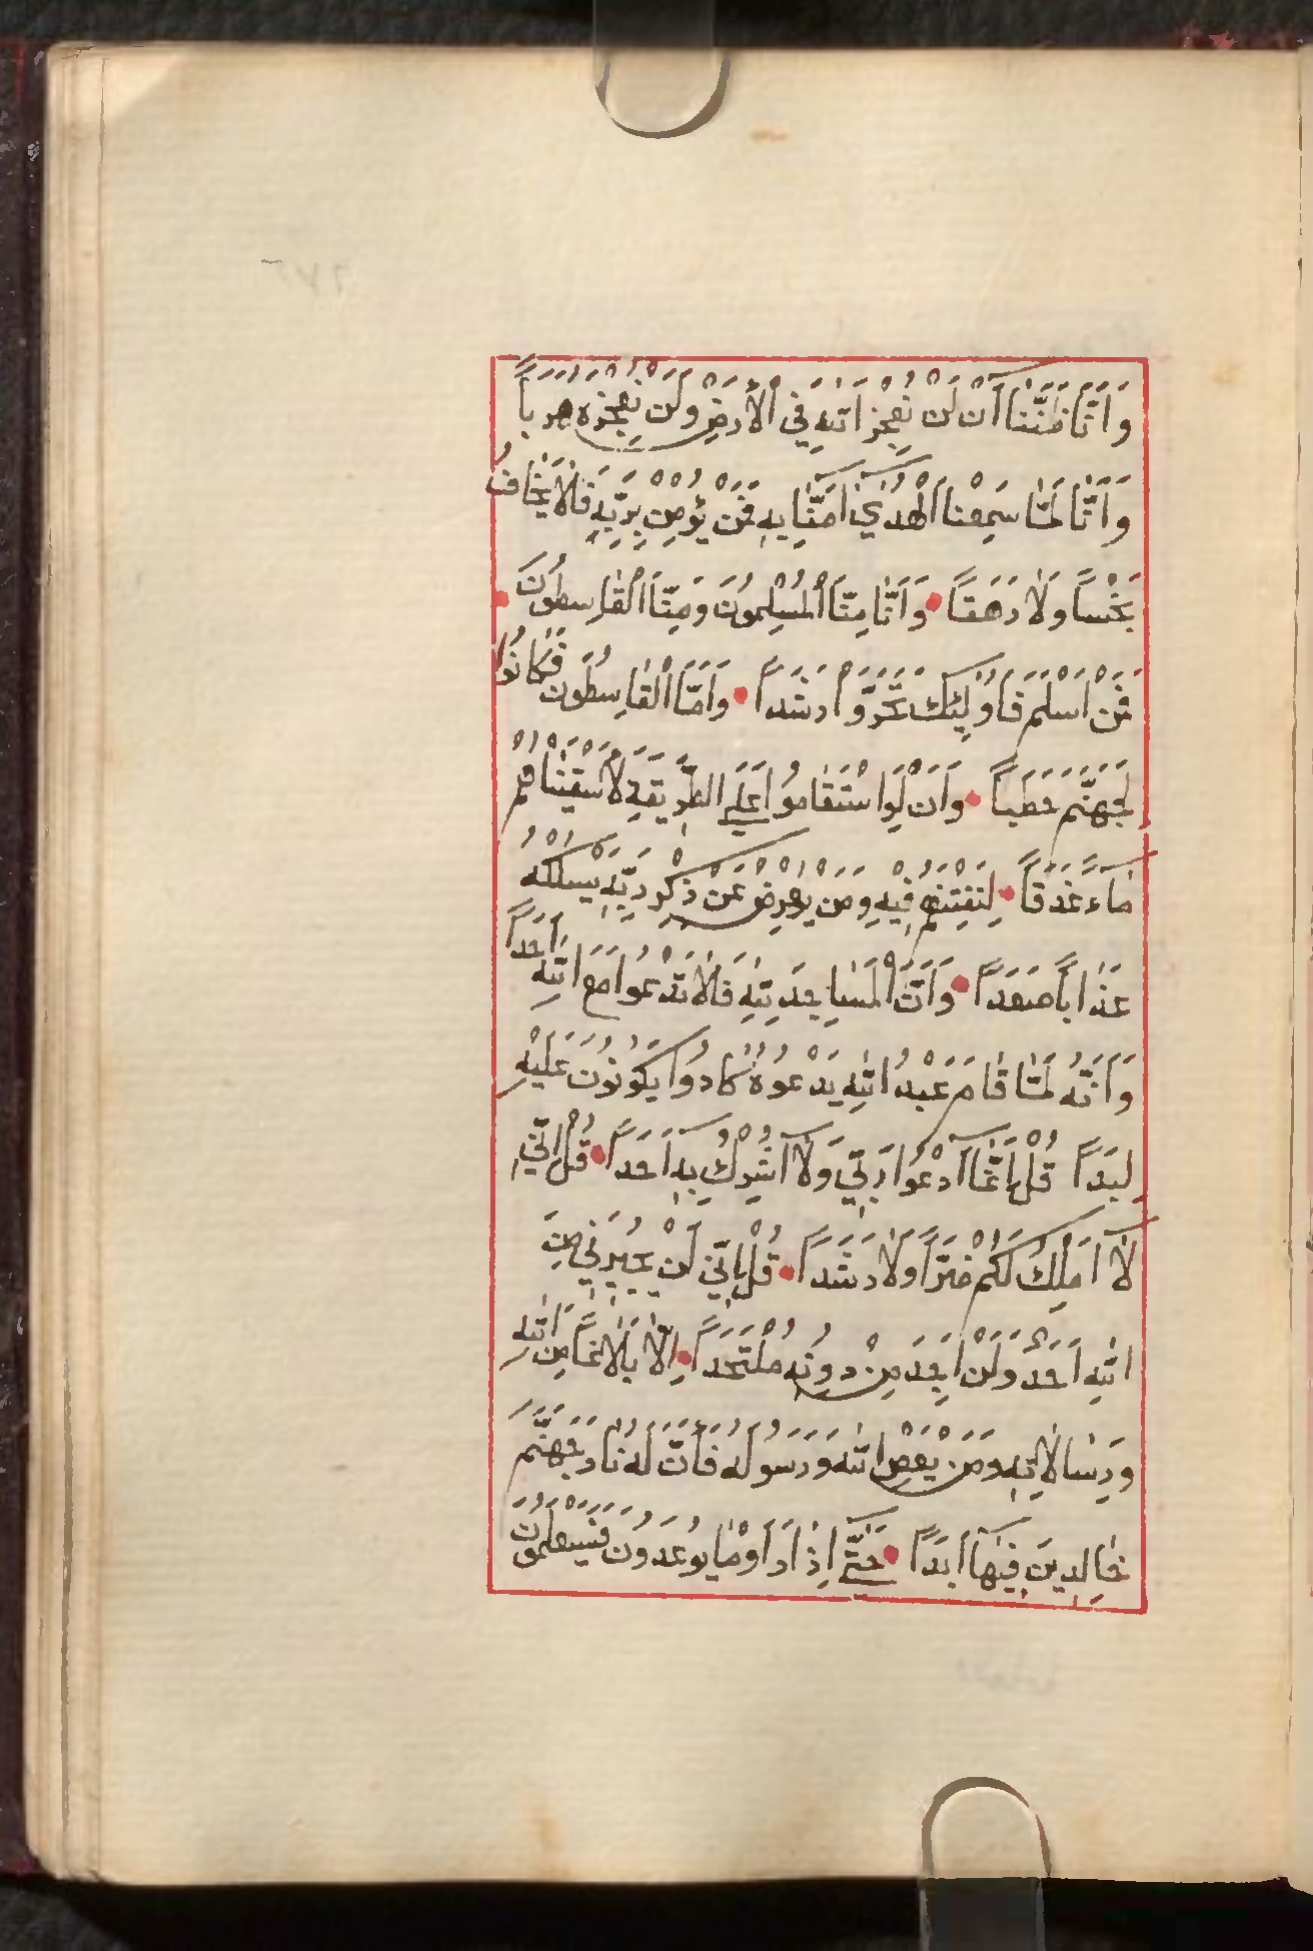 وَاَنَّا ظَنَنَّا اَنْ لَنْ نُعْجِزَ اللهَ فِي الْاَرْضِ وَلَنْ نُعْجِزَهُ هَرَباً
وَاَنَّا لَمَّا سَمِعْنَا الْهُدٰيٓ اٰمَنَّا بِهِ فَمَنْ يُؤْمِنْ بِرَبِّهِ فَلَا يَخَافُ
بَخْساً وَلَا رَهَقاً وَاَنَّا مِنَّا الْمُسْلِمُونَ وَمِنَّا الْقَاسِطُونَ
فَمَنْ اَسْلَمَ فَاُولٰٓئِكَ تَحَرَّوْا رَشَداً وَاَمَّا الْقَاسِطُونَ فَكَانُوا
لِجَهَنَّمَ حَطَباً وَاَنْ لَوِ اسْتَقَامُوا عَلَي الطَّرِيقَةِ لَاَسْقَيْنَاهُمْ
مَآءً غَدَقاً لِنَفْتِنَهُمْ فِيهِ وَمَنْ يُعْرِضْ عَنْ ذِكْرِ رَبِّهِ يَسْلُكْهُ
عَذَاباً صَعَداً وَاَنَّ الْمَسَاجِدَ لِلّٰهِ فَلَا تَدْعُوا مَعَ اللهِ اَحَداً
وَاَنَّهُ لَمَّا قَامَ عَبْدُ اللهِ يَدْعُوهُ كَادُوا يَكُونُونَ عَلَيْهِ
لِبَداً قُلْ اِنَّمَآ اَدْعُوا رَبِّي وَلَآ اُشْرِكُ بِهِٓ اَحَداً قُلْ اِنِّي
لَآ اَمْلِكُ لَكُمْ ضَرّاً وَلَا رَشَداً قُلْ اِنِّي لَنْ يُجِيرَنِي مِنَ
اللهِ اَحَدٌ وَلَنْ اَجِدَ مِنْ دُونِهِ مُلْتَحَداً اِلَّا بَلَاغاً مِنَ اللهِ
وَرِسَالَاتِهِ وَمَنْ يَعْصِ اللهَ وَرَسُولَهُ فَاِنَّ لَهُ نَارَ جَهَنَّمَ
خَالِدِينَ فِيهَآ اَبَداً حَتَّيٓ اِذَا رَاَوْا مَا يُوعَدُونَ فَسَيَعْلَمُونَ